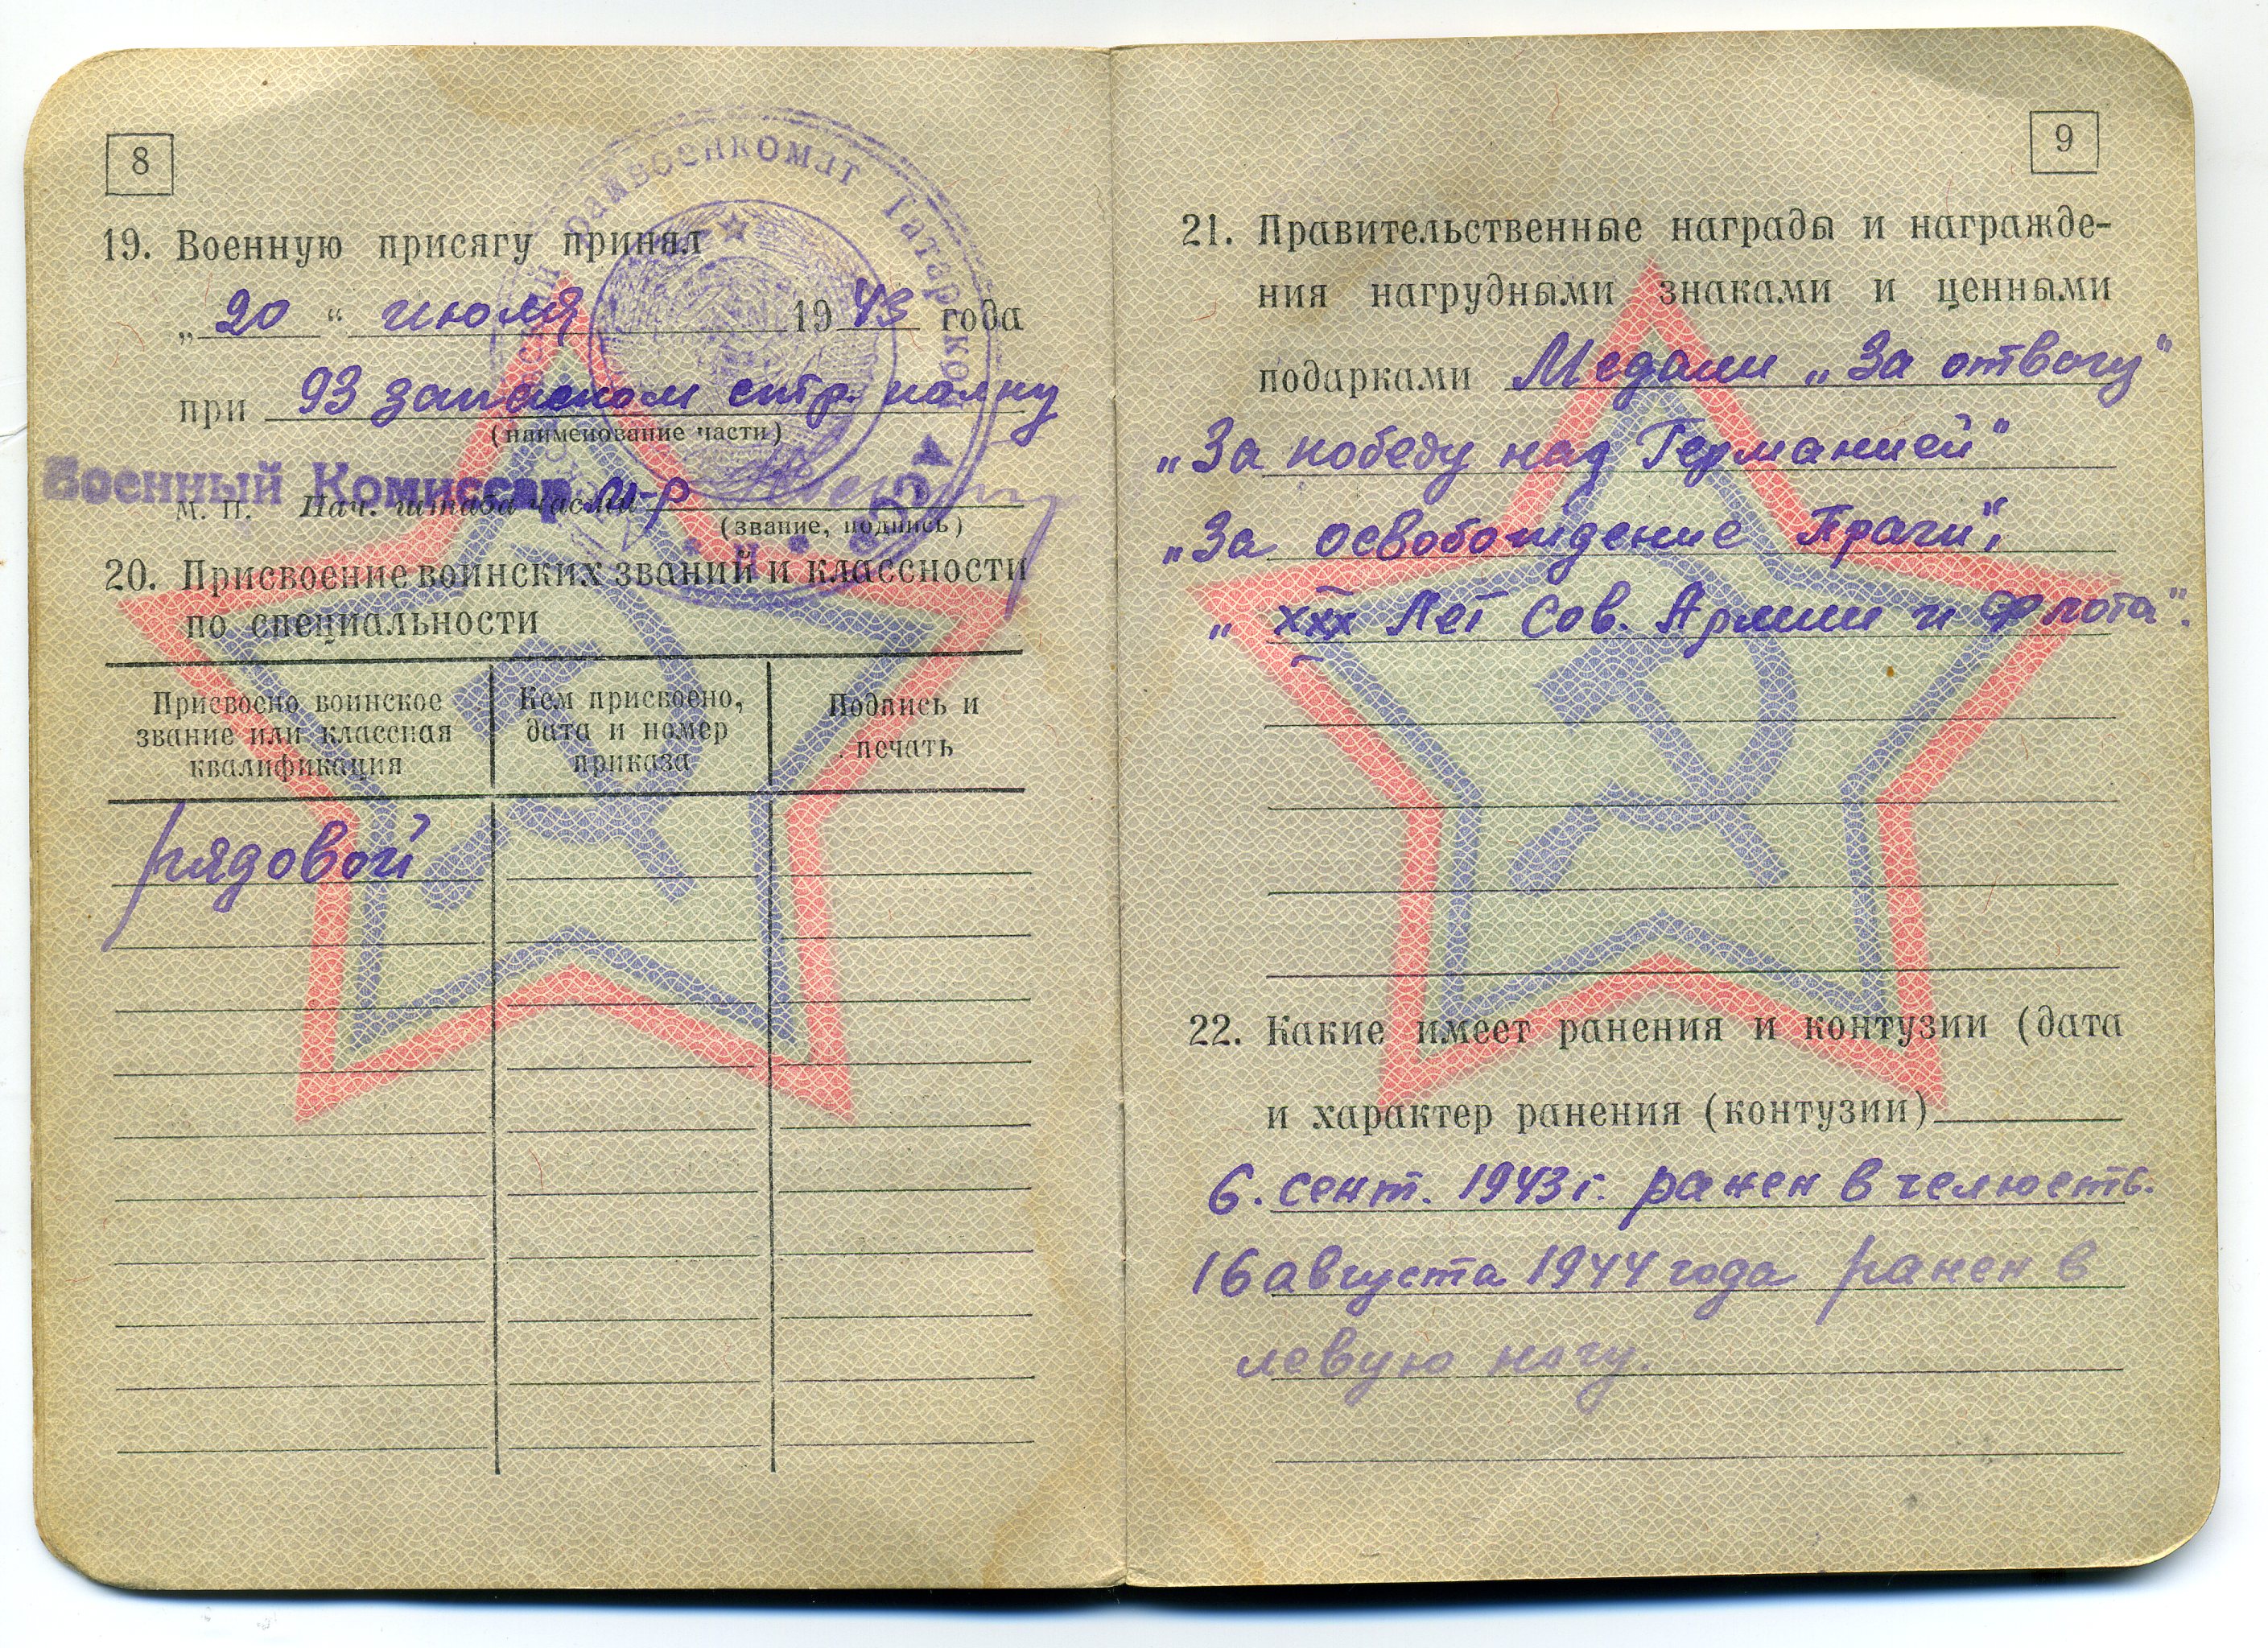 8
19. Военную присягу принял
„20“ июля 1943 года
при 93 запасном стр. полку
(наименование части)
Военный Комиссар м-р
М. П. Нач. штаба части
(звание, подпись)
райвоенкомат Татарской АССР
20. Присвоение воинских званий и классности
по специальности
Присвоено воинское
звание или классная
квалификация
Кем присвоено,
дата и номер
приказа
Подпись и
печать
рядовой
9
21. Правительственные награды и награжде-
ния нагрудными знаками и ценными
подарками Медали „За отвагу"
„За победу над Германией"
„За освобождение Праги",
„XXX Лет Сов. Армии и Флота".
22. Какие имеет ранения и контузии (дата
и характер ранения (контузии)
6. сент. 1943 г. ранен в челюсть.
16 августа 1944 года ранен в
левую ногу.